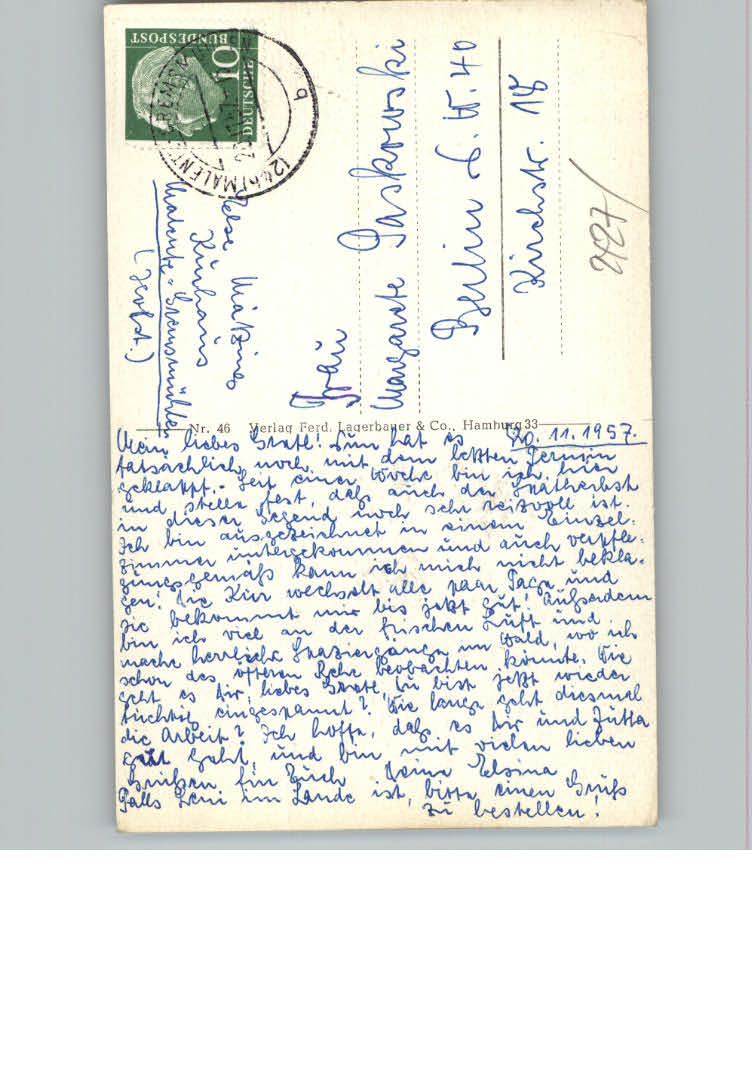 DEUTSCHE
BUNDESPOST
10
(24b) MALENTE-GREMSMÜHLEN
b
Else
Kurhaus
Malente-Gremsmühlen
(Holst.)
Frau
Margarete Paskowski
Berlin N.W. 40
Kirchstr. 18
2127/
Nr. 46 Verlag Ferd. Lagerbauer & Co., Hamburg 33
20.11.1957.
Mein liebes Gretl! Nun hat es
tatsächlich noch mit dem letzten Termin
geklappt. Seit einer Woche bin ich hier
und stelle fest, daß auch der Spätherbst
in dieser Gegend noch sehr reizvoll ist.
Ich bin ausgezeichnet in einem Einzel-
zimmer untergekommen und auch verpfle-
gungsgemäß kann ich mich nicht bekla-
gen! Die Kur wechselt alle paar Tage und
sie bekommt mir bis jetzt gut! Außerdem
bin ich viel an der frischen Luft und
mache herrliche Spaziergänge im Wald, wo ich
schon des öfteren Rehe beobachten konnte. Wie
geht es Dir, liebes Gretl, Du bist jetzt wieder
tüchtig eingespannt? Wie lange geht diesmal
die Arbeit? Ich hoffe, daß es Dir und Jutta
gut geht, und bin mit vielen lieben
Grüßen für Euch Deine Elsina
Falls Leni im Lande ist, bitte einen Gruß
zu bestellen!